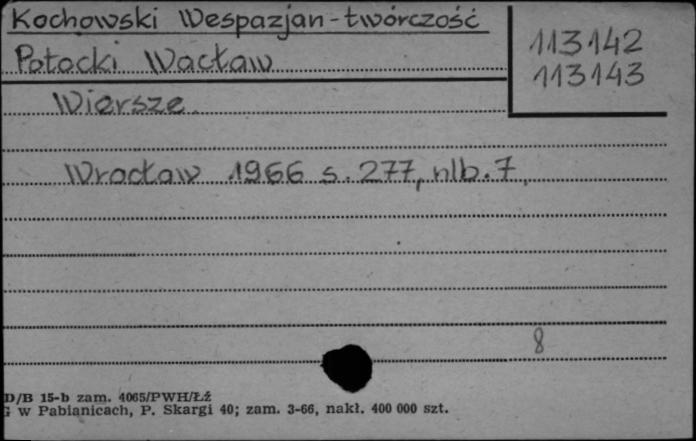 Kochowski Wespazjan - twórczość
113142
Potocki Wacław
113143
Wiersze
Wrocław 1966 s. 277, nlb. 7
8
D/B 15-b zam. 4065/PWH/Łź
w Pabianicach, P. Skargi 40; zam. 3-66, nakł. 400 000 szt.